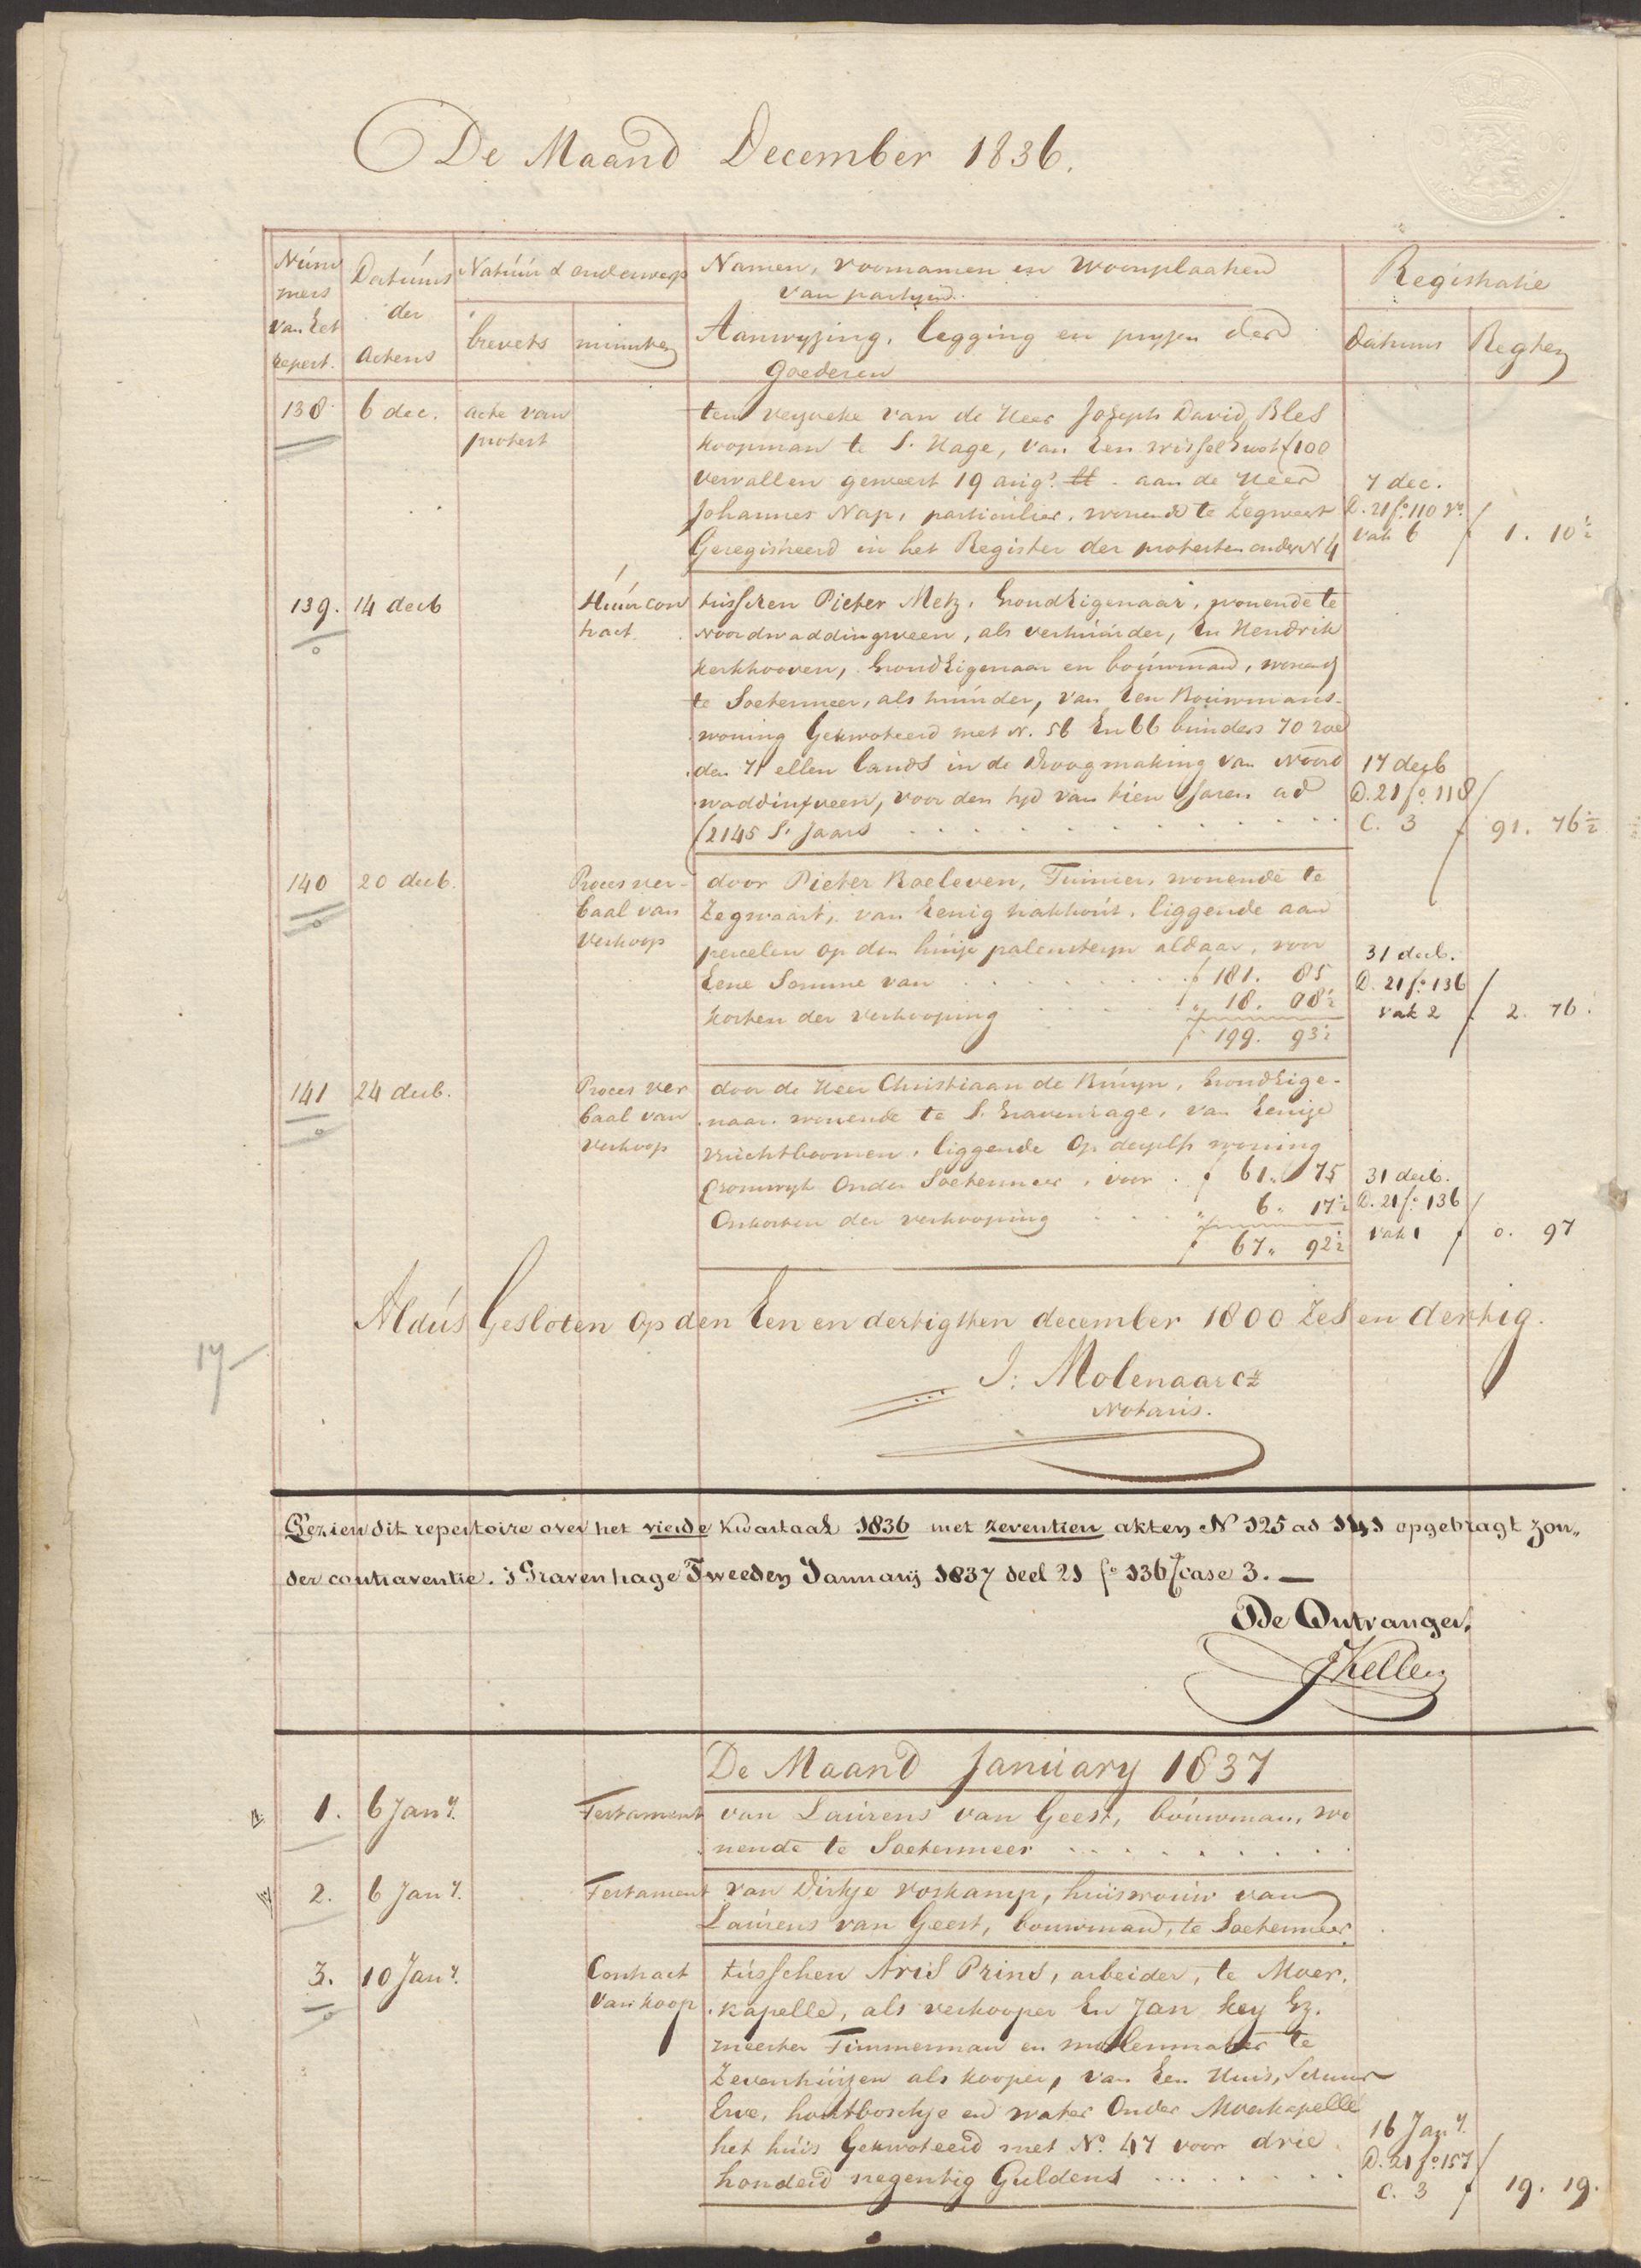 De Maand December 1836.
Núm
mers
van het
repert.
Datúms
der
Actens
Natúúr & onderwerp
brevets
minuten
Namen, voornamen en Woonplaatsen
van partyen.
Aanwyzing, legging en pryzen der
Goederen
Registratie
datums
Regten
138 6 dec. acte van ten verzoeke van de Heer Joseph David Bles
protest koopman te S. Hage, van een wissel groot ƒ100
vervallen geweest 19 aug. aan de Heer 7 dec.
Johannes Nap, particulier, wonende te Zegwaart D. 21 fo. 110 vo.
Geregistreerd in het Register der protesten onder N 4 vak 6 ƒ 1. 10½
139. 14 decb Húúrcon tusschen Pieter Metz, Grondeigenaar, wonende te
tract. Noordwaddingsveen, als verhúúrder, En Hendrik
Kerkhooven, Grondeigenaar en boúwman, wonend
te Soetermeer, als húúrder, van Een Bouwmans-
woning Gekwoteerd met N. 56 En 66 bunders 70 roe
den 71 ellen lands in de Droogmaking van Noord 17 decb
waddinxveen, voor den tyd van tien Jaren ad D. 21 fo. 118
ƒ2145 S. Jaars C. 3 ƒ 91. 76½
140 20 decb. Proces ver- door Pieter Roeleven, Tuinier, wonende te
baal van Zegwaart, van Eenig hakhoút, liggende aan
Verkoop percelen op den huize palensteyn aldaar, voor 31 decb.
Eene Somme van ƒ 181. 85 D. 21 fo. 136
kosten der verkooping 18. 08½ vak 2 ƒ 2. 76
ƒ 199. 93½
141 24 decb. Proces ver door de Heer Christiaan de Brúyn, Grondeige-
baal van naar wonende te S. Gravenhage, van Eenige
Verkoop vruchtboomen, liggende Op deszelfs woning
onder Soetermeer, voor ƒ 61. 75 31 decb.
Onkosten der verkooping 6. 17½ D. 21 fo. 136
ƒ 67. 92½ vak 1 ƒ 0. 97
Aldús Gesloten op den Een en dertigsten december 1800 Zes en dertig.
17
J: Molenaar Cz
Notaris.
Gezien dit repertoire over het vierde kwartaal 1836 met zeventien akten N 125 ad 141 opgebragt zon„
der contraventie. 's Gravenhage Tweeden Januarij 1837 deel 21 fo 136 case 3. —
De Ontvanger,
JKeller
De Maand Janúary 1837
1. 6 Jany. Testament van Laúrens van Geest, boúwman, wo
nende te Soetermeer
2. 6 Jany. Testament van Dirkje Voskamp, húisvroúw van
Laúrens van Geest, bouwman, te Soetermeer
3. 10 Jany. Contract tússchen Aris Prins, arbeider, te Moer,
van koop kapelle, als verkooper En Jan Key Gz.
meester Timmerman en molenmaker te
Zevenhúizen als kooper, van Een Huis, Schuur
Erve, houtboschje en water Onder Moerkapelle
het húis Gekwoteerd met No. 47 voor drie 16 Jany.
honderd negentig Guldens D. 21 fo. 157
C. 3 ƒ 19. 19.